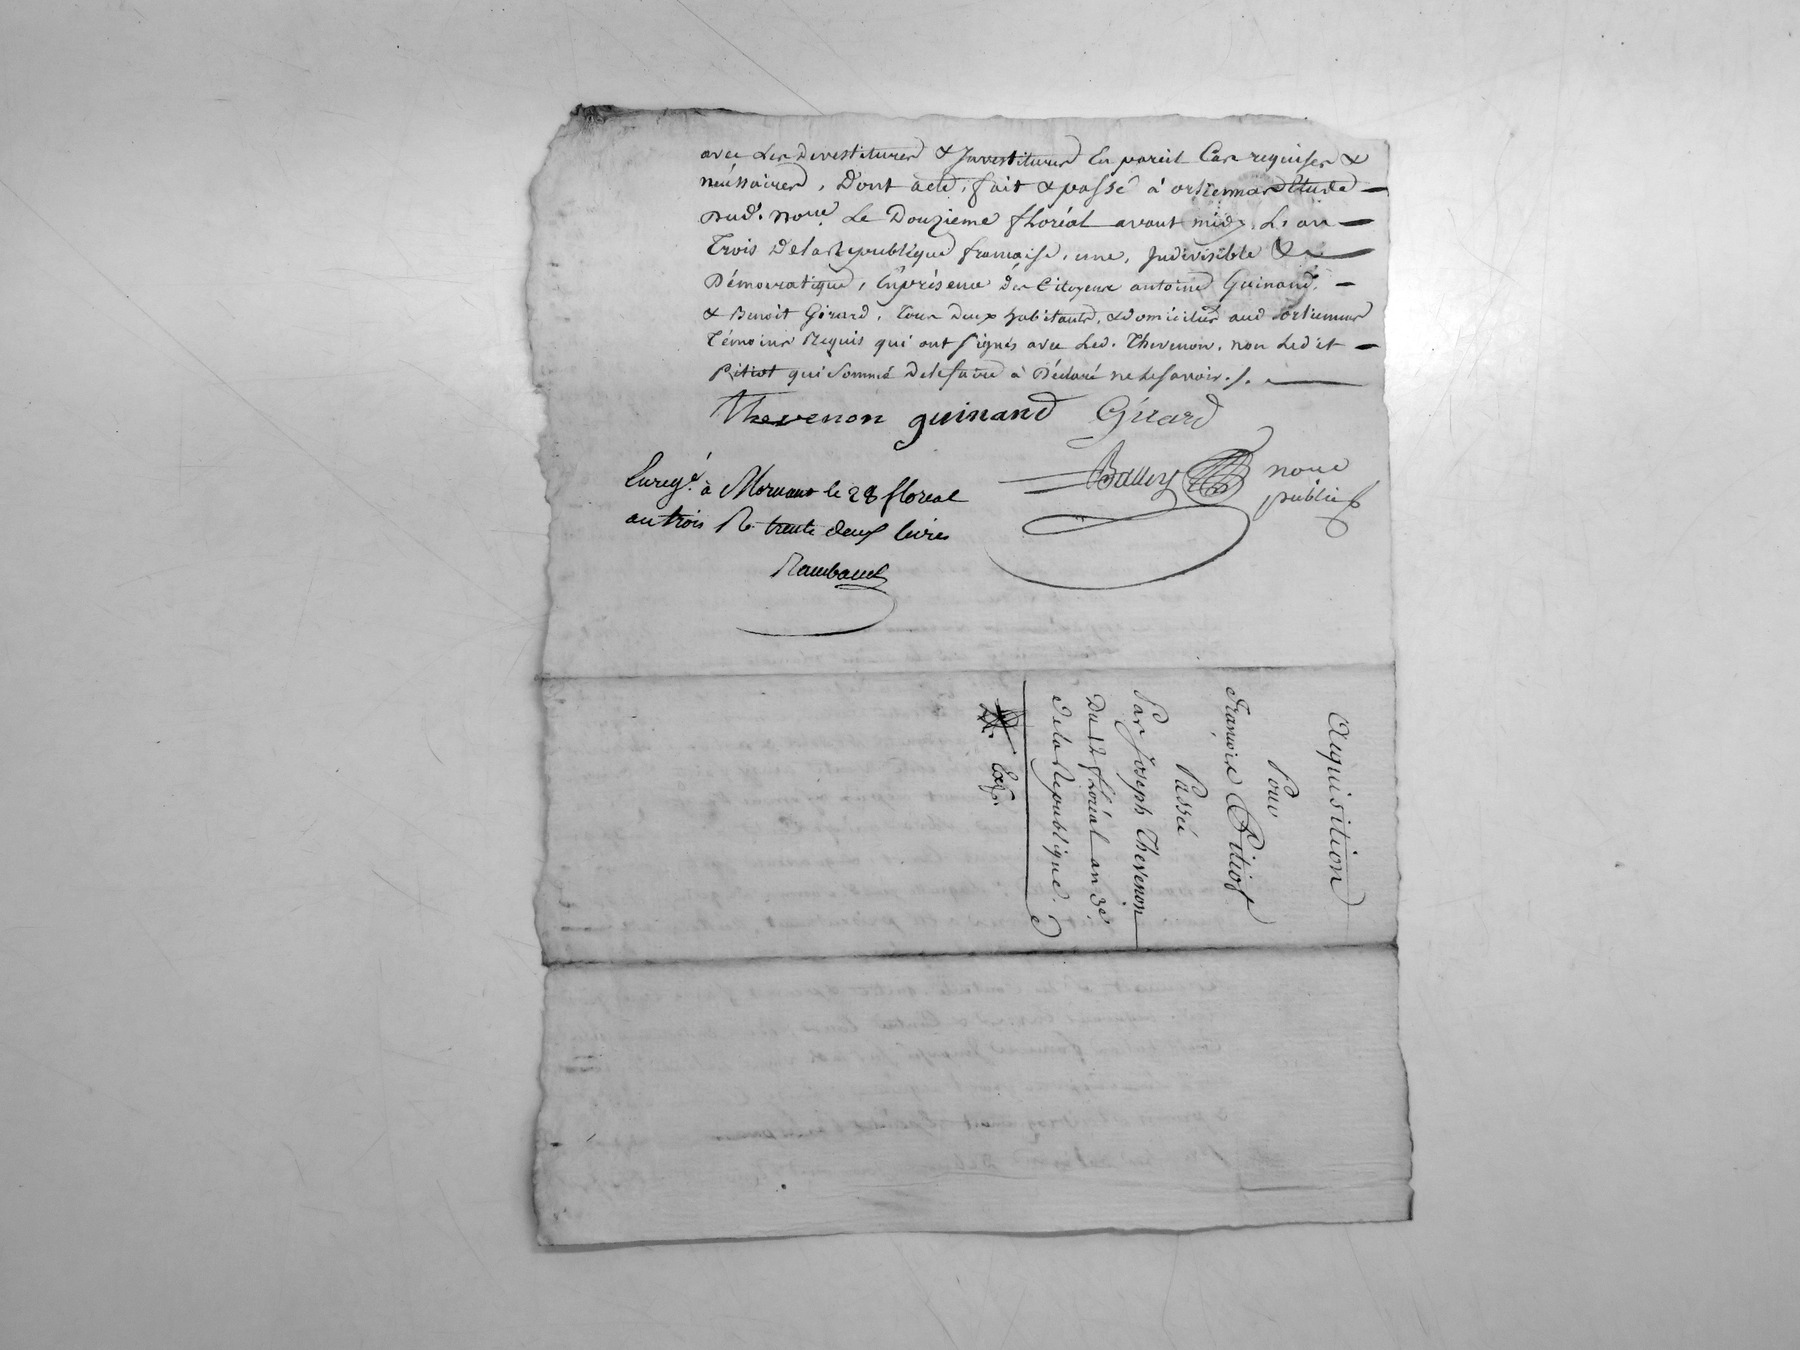 avec les devestitures & Investitures En pareil Cas requises &
nécessaires, Dont acte, fait & passé à orliennas Etude
dud. no.re Le Douzieme floréal avant midy, L'an
Trois De la Republique francaise, une, Indivisible &
Démocratique, En présence des Citoyens antoine Guinand,
& Benoit Girard, Tous deux habitants, & domiciliés aud. orliennas
Témoins Requis qui ont signés avec led. Thevenon, non led. et
Pitiot qui sommé de le faire à Déclaré ne le savoir ./.
thevenon guinand Girard
Balley no.re
public
Enreg.é à Mornant le 28 floreal
an trois R. trente deux livres
Raimbaud
Acquisition
Pour
François Pitiot
Passée
Par Joseph Thevenon
Du 12 floréal an 3e.
De la Republique.
Exp.